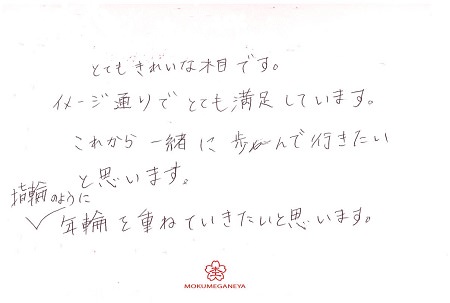 とてもきれいな木目です。
イメージ通りでとても満足しています。
これから一緒に歩んで行きたい
と思います。
指輪のように
年輪を重ねていきたいと思います。
MOKUMEGANEYA